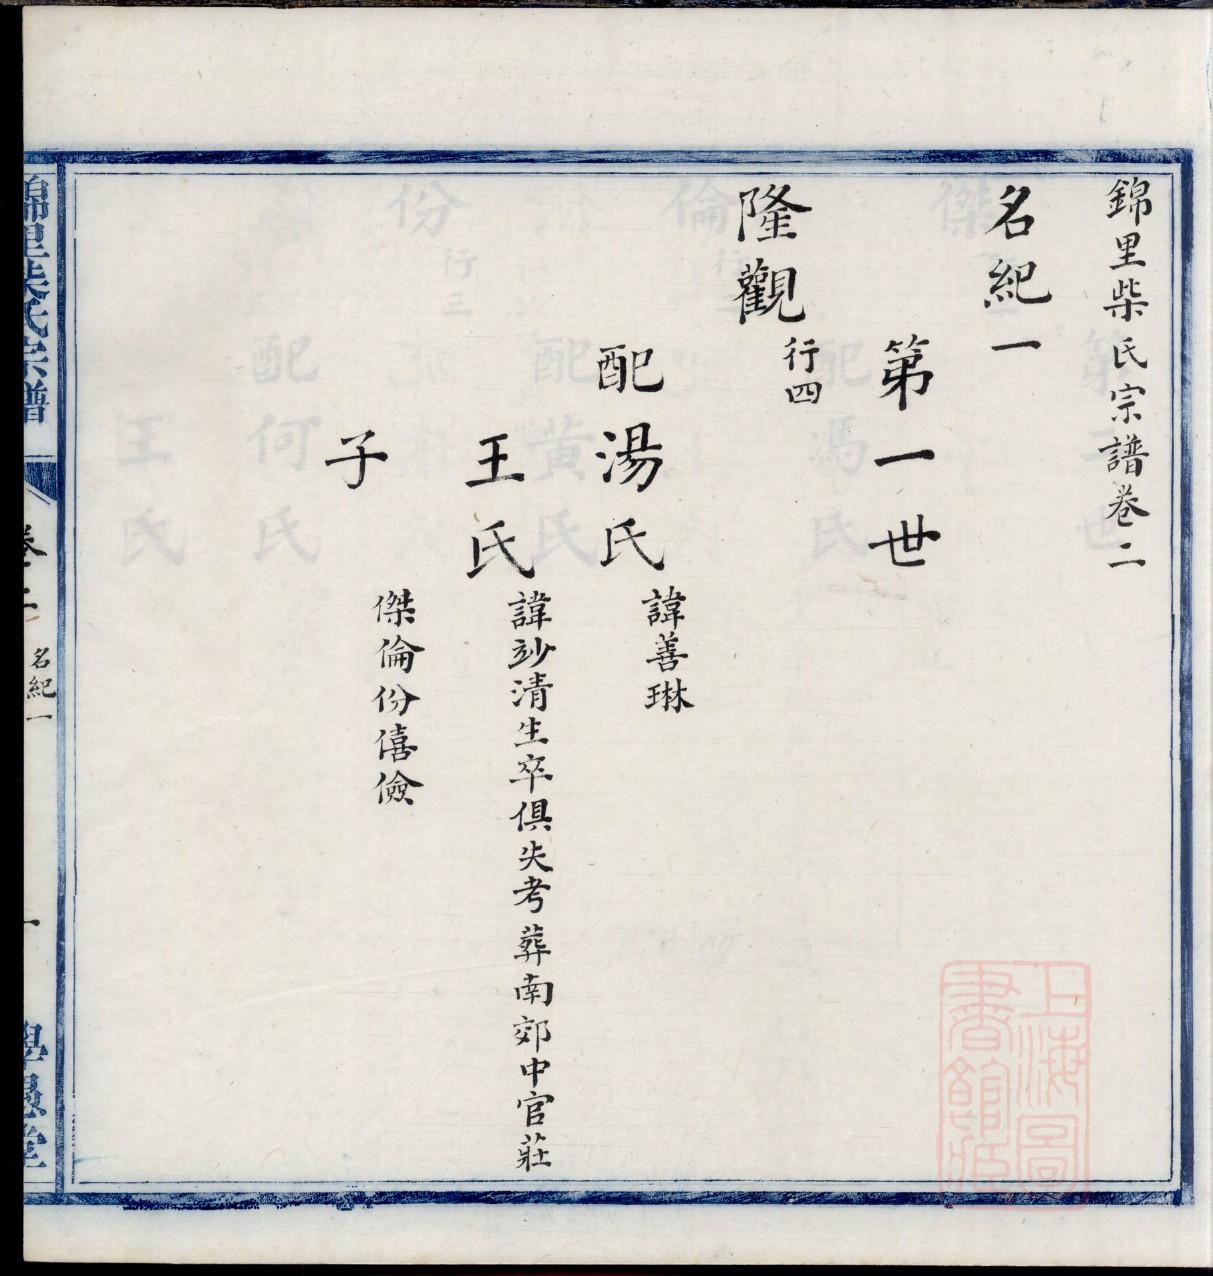 錦里柴氏宗譜卷二
名紀一
第一世
隆觀
行四
配湯氏
諱善琳
王氏
諱玅清生卒俱失考葬南郊中官莊
子
傑倫份僖儉
錦里柴氏宗譜
卷二
名紀一
一
上海圖書館藏